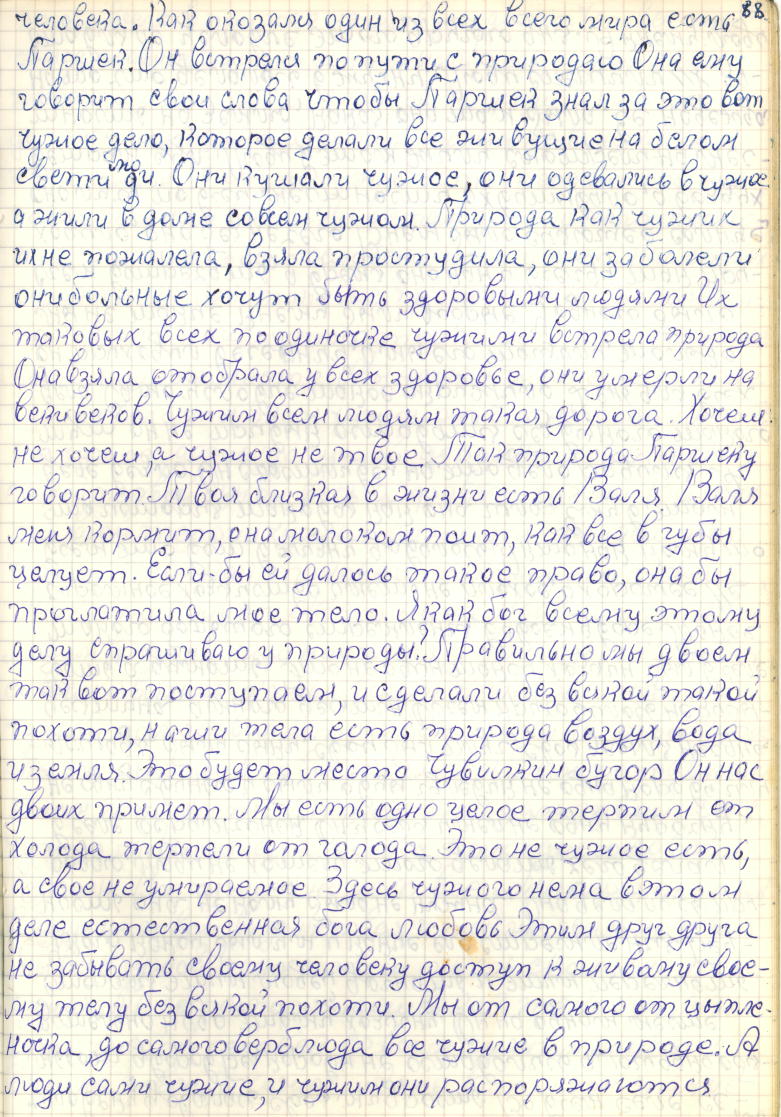 88
человека. Как оказался один из всех всего мира есть
Паршек. Он встреля по пути с природаю Она ему
говорит свои слова чтобы Паршек знал за это вот
чужое дело, которое делали все живущие на белом
свети люди. Они кушали чужое, они одевались в чужое
а жили в доме совсем чужом. Природа как чужих
их не пожалела, взяла простудила, они заболели
они больные хочут быть здоровыми людями Их
таковых всех по одиночке чужими встрела природа
Она взяла отобрала у всех здоровье, они умерли на
веки веков. Чужим всем людям такая дорога. Хочеш
не хочеш, а чужое не твое Так природа Паршеку
говорит. Твоя близкая в жизни есть Валя. Валя
меня кормит, она молоком поит, как все в губы
целует. Если-бы ей далось такое право, она бы
проглатила мое тело. Я как бог всему этому
делу спрашиваю у природы? Правильно мы двоем
так вот поступаем, и сделали без всякой такой
похоти, наши тела есть природа воздух, вода
и земля. Это будет место Чувилкин бугор Он нас
двоих примет. Мы есть одно целое терпим от
холода терпели от голода. Это не чужое есть,
а свое не умираемое Здесь чужого нема в этом
деле естественная бога любовь Этим друг друга
не забывать своему человеку доступ к живому свое-
му телу без всякой похоти. Мы от самого от цыпле-
ночка, до самого верблюда все чужие в природе. А
люди сами чужие, и чужим они распоряжаются